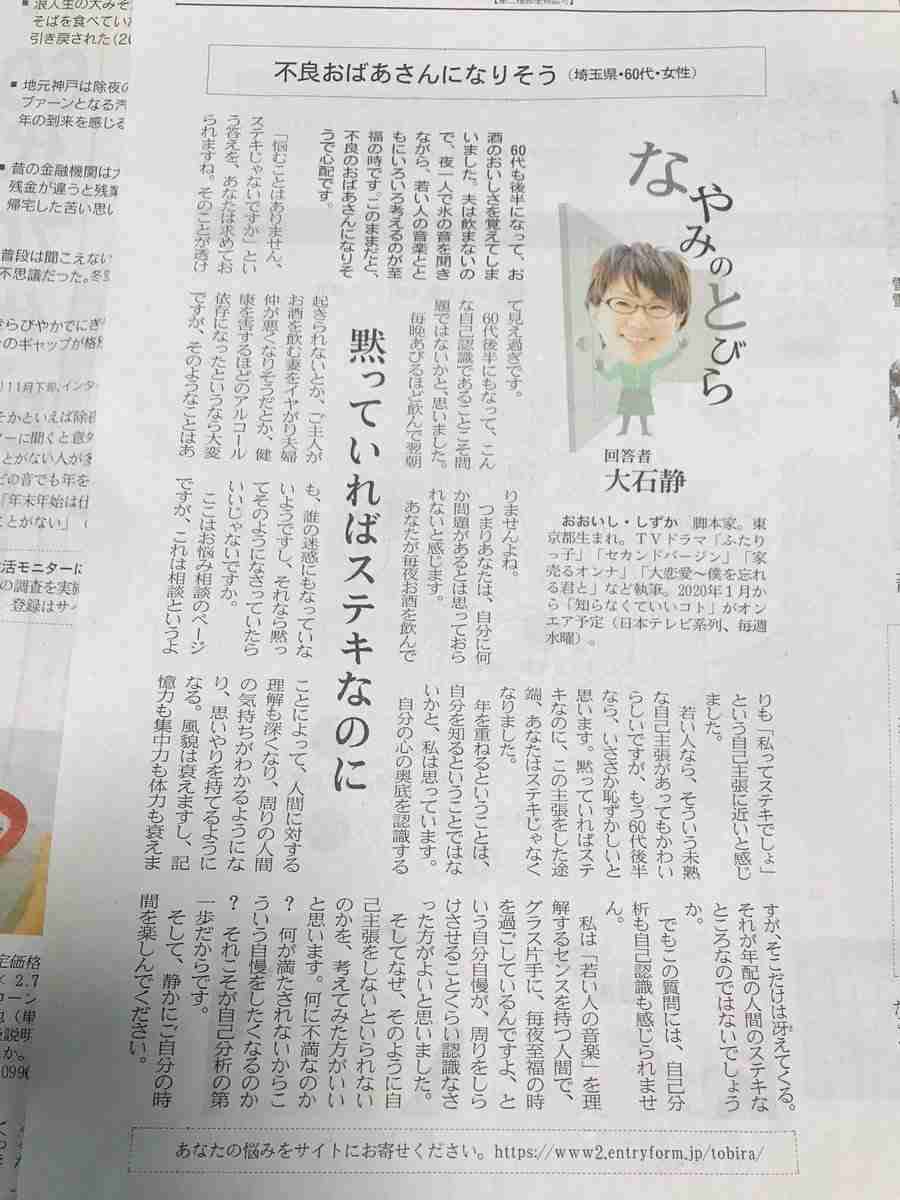 不良おばあさんになりそう（埼玉県・60代・女性）
なやみのとびら
回答者
大石静
おおいし・しずか　脚本家。東
京都生まれ。TVドラマ「ふたり
っ子」「セカンドバージン」「家
売るオンナ」「大恋愛〜僕を忘れ
る君と」など執筆。2020年1月か
ら「知らなくていいコト」がオン
エア予定（日本テレビ系列、毎週
水曜）。
60代も後半になって、お
酒のおいしさを覚えてしま
いました。夫は飲まないの
で、夜一人で氷の音を聞き
ながら、若い人の音楽とと
もにいろいろ考えるのが至
福の時です。このままだと、
不良のおばあさんになりそ
うで心配です。
黙っていればステキなのに
「悩むことはありません、
ステキじゃないですか」とい
う答えを、あなたは求めてお
られますね。そのことが透け
て見え過ぎです。
60代後半にもなって、こん
な自己認識であることこそ問
題ではないかと、思いました。
毎晩あびるほど飲んで翌朝
起きられないとか、ご主人が
お酒を飲む妻をイヤがり夫婦
仲が悪くなりそうだとか、健
康を害するほどのアルコール
依存になったというなら大変
ですが、そのようなことはあ
りませんよね。
つまりあなたは、自分に何
か問題があるとは思っておら
れないと感じます。
あなたが毎夜お酒を飲んで
も、誰の迷惑にもなっていな
いようですし、それなら黙っ
てそのようになさっていたら
いいじゃないですか。
ここはお悩み相談のページ
ですが、これは相談というよ
りも「私ってステキでしょ」
という自己主張に近いと感じ
ました。
若い人なら、そういう未熟
な自己主張があってもかわい
らしいですが、もう60代後半
なら、いささか恥ずかしいと
思います。黙っていればステ
キなのに、この主張をした途
端、あなたはステキじゃなく
なりました。
年を重ねるということは、
自分を知るということではな
いかと、私は思っています。
自分の心の奥底を認識する
ことによって、人間に対する
理解も深くなり、周りの人間
の気持ちがわかるようにな
り、思いやりを持てるように
なる。風貌は衰えますし、記
憶力も集中力も体力も衰えま
すが、そこだけは冴えてくる。
それが年配の人間のステキな
ところなのではないでしょう
か。
でもこの質問には、自己分
析も自己認識も感じられませ
ん。
私は「若い人の音楽」を理
解するセンスを持つ人間で、
グラス片手に、毎夜至福の時
を過ごしているんですよ、と
いう自分自慢が、周りをしら
けさせることくらい認識なさ
った方がよいと思いました。
そしてなぜ、そのように自
己主張をしないといられない
のかを、考えてみた方がいい
と思います。何に不満なのか
？　何が満たされないからこ
ういう自慢をしたくなるのか
？　それこそが自己分析の第
一歩だからです。
そして、静かにご自分の時
間を楽しんでください。
あなたの悩みをサイトにお寄せください。https://www2.entryform.jp/tobira/
そばを食べてい
引き戻された(20
■地元神戸は除夜の
年の到来を感じる
■昔の金融機関は
残金が違うと残業
帰宅した苦い思い
普段は聞こえない
不思議だった。
のギャップが格
11月下旬、インタ
そかといえば除夜
ーに聞くと意外
とがない人が多
どの音でも年を
「年末年始は仕
ことがない」
活モニターに
の調査を実施
登録はサ
定価格